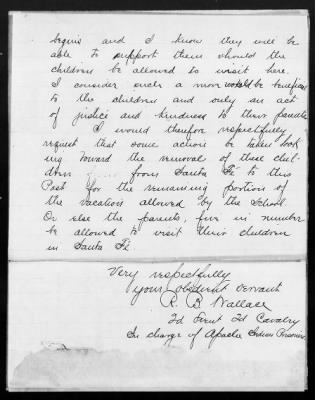 begins and I know they will be
able to support them should the
children be allowed to visit here.
I consider such a move would be beneficial
to the children and only an act
of justice and kindness to their parents
I would therefor respectfully
request that some action be taken look
ing toward the removal of these chil-
dren from Santa Fé to this
Post for the remaining portion of
the vacation allowed by the School
Or else the parents, five in number
be allowed to visit their children
in Santa Fé.
Very respectfully
your obedient servant
R. B. Wallace
2d Lieut 2d Cavalry
In charge of Apache Indian Prisoners